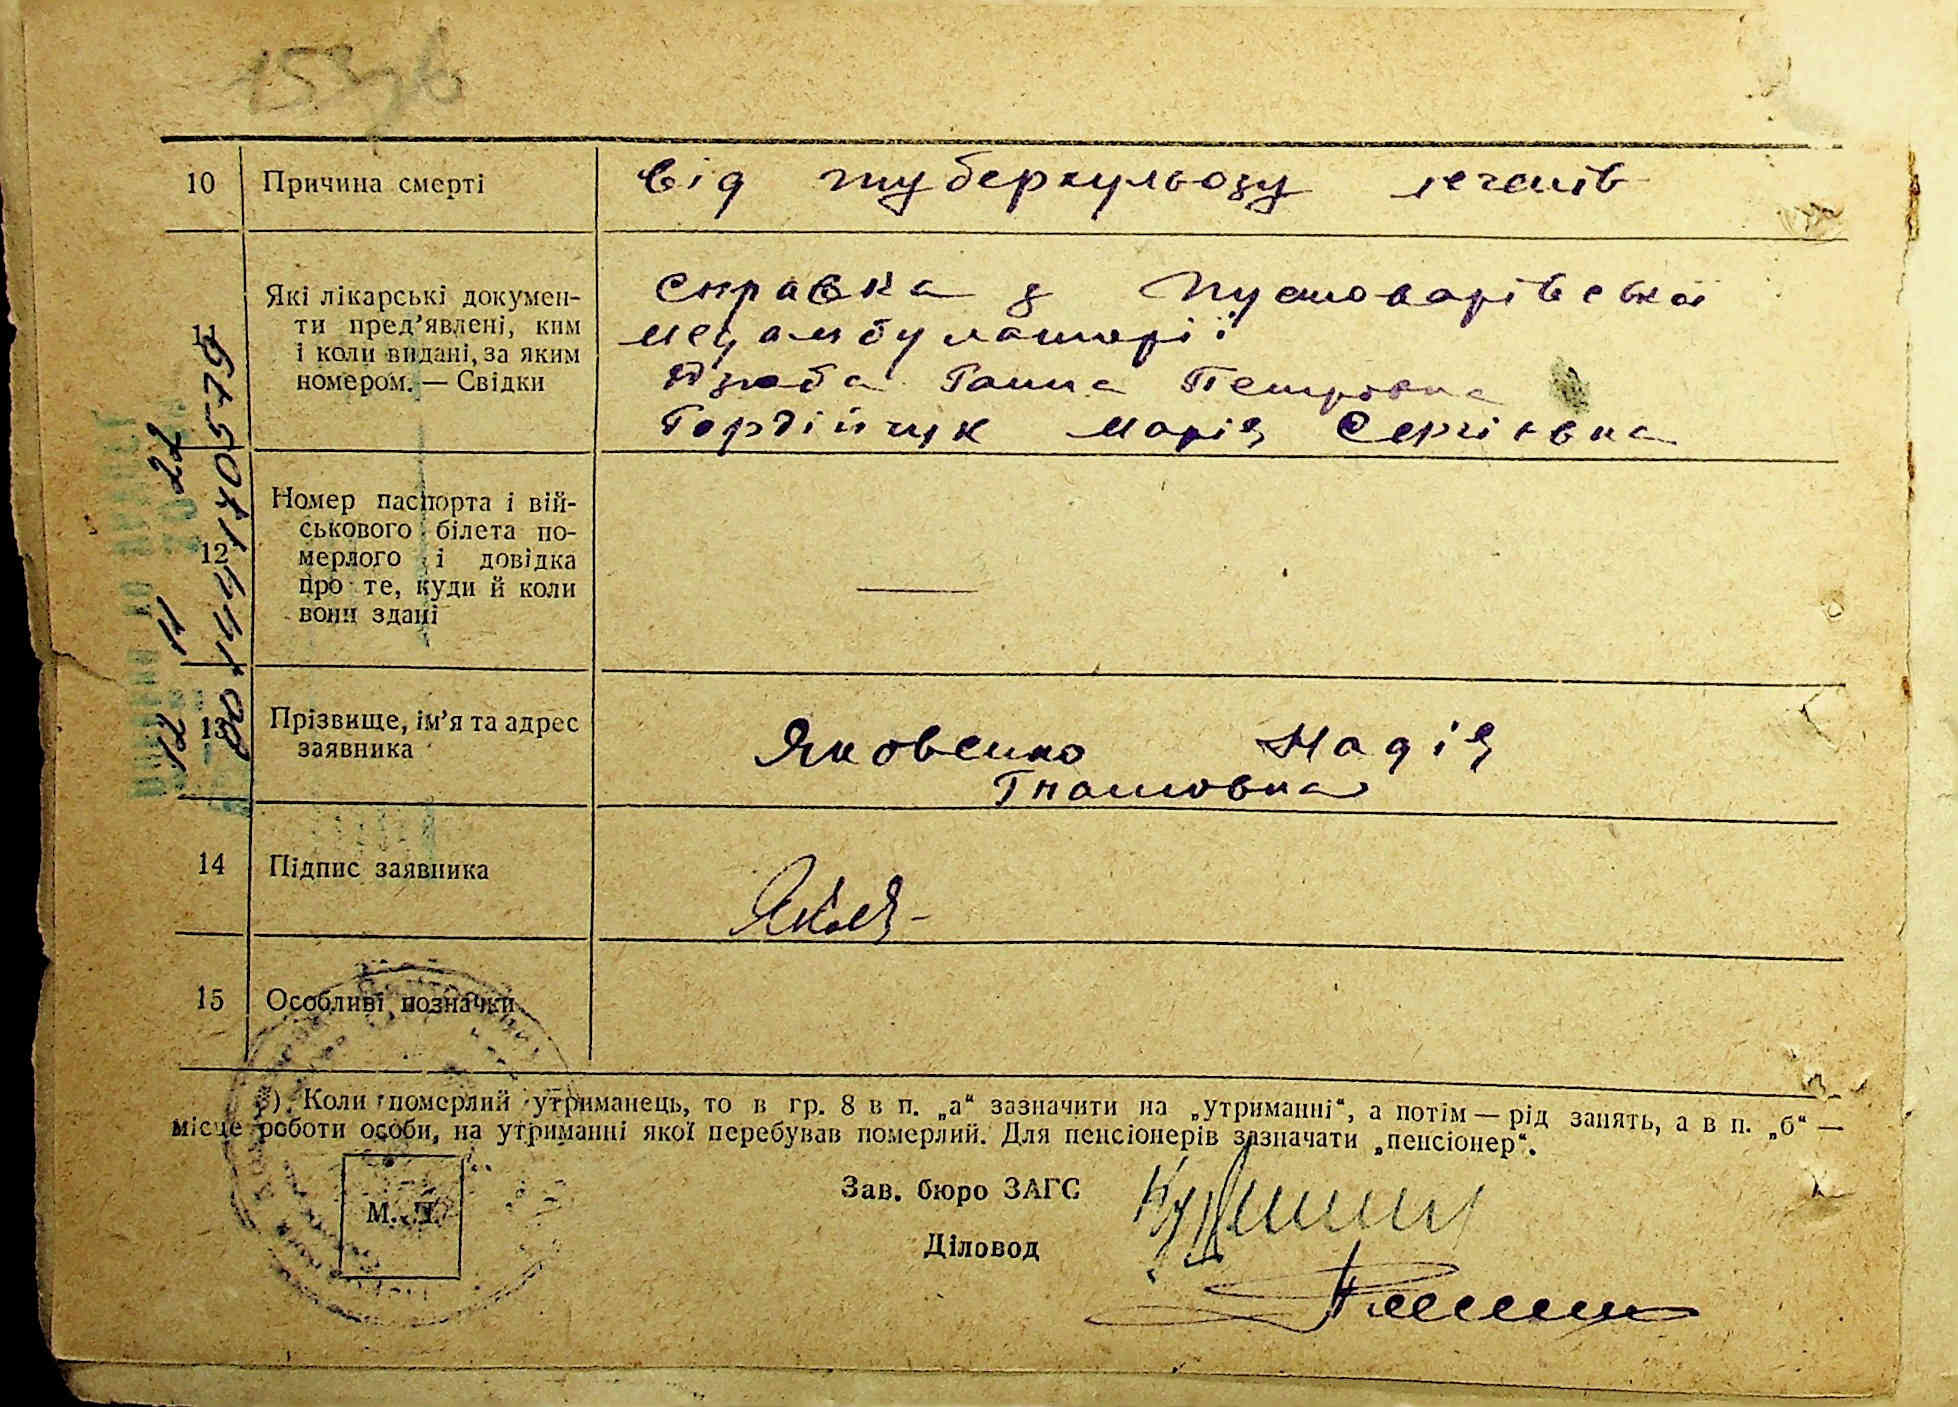 10 Причина смерті від туберкульозу легенів
Які лікарські докумен-
ти пред’явлені, ким
і коли видані, за яким
номером. — Свідки
справка з Пустоварівської
медамбулаторії
Дзюба Ганна Петровна
Гордійчук Марія Сергіївна
12 Номер паспорта і вій-
ськового білета по-
мерлого і довідка
про те, куди й коли
вони здані
—
13 Прізвище, ім’я та адрес
заявника
Яковенко Надія
Гнатовна
14 Підпис заявника
15 Особливі позначки
*) Коли померлий утриманець, то в гр. 8 в п. „а“ зазначити на „утриманні“, а потім — рід занять, а в п. „б“ —
місце роботи особи, на утриманні якої перебував померлий. Для пенсіонерів зазначати „пенсіонер“.
Зав. бюро ЗАГС
Діловод
М. П.
12 11 22
00144170 5579